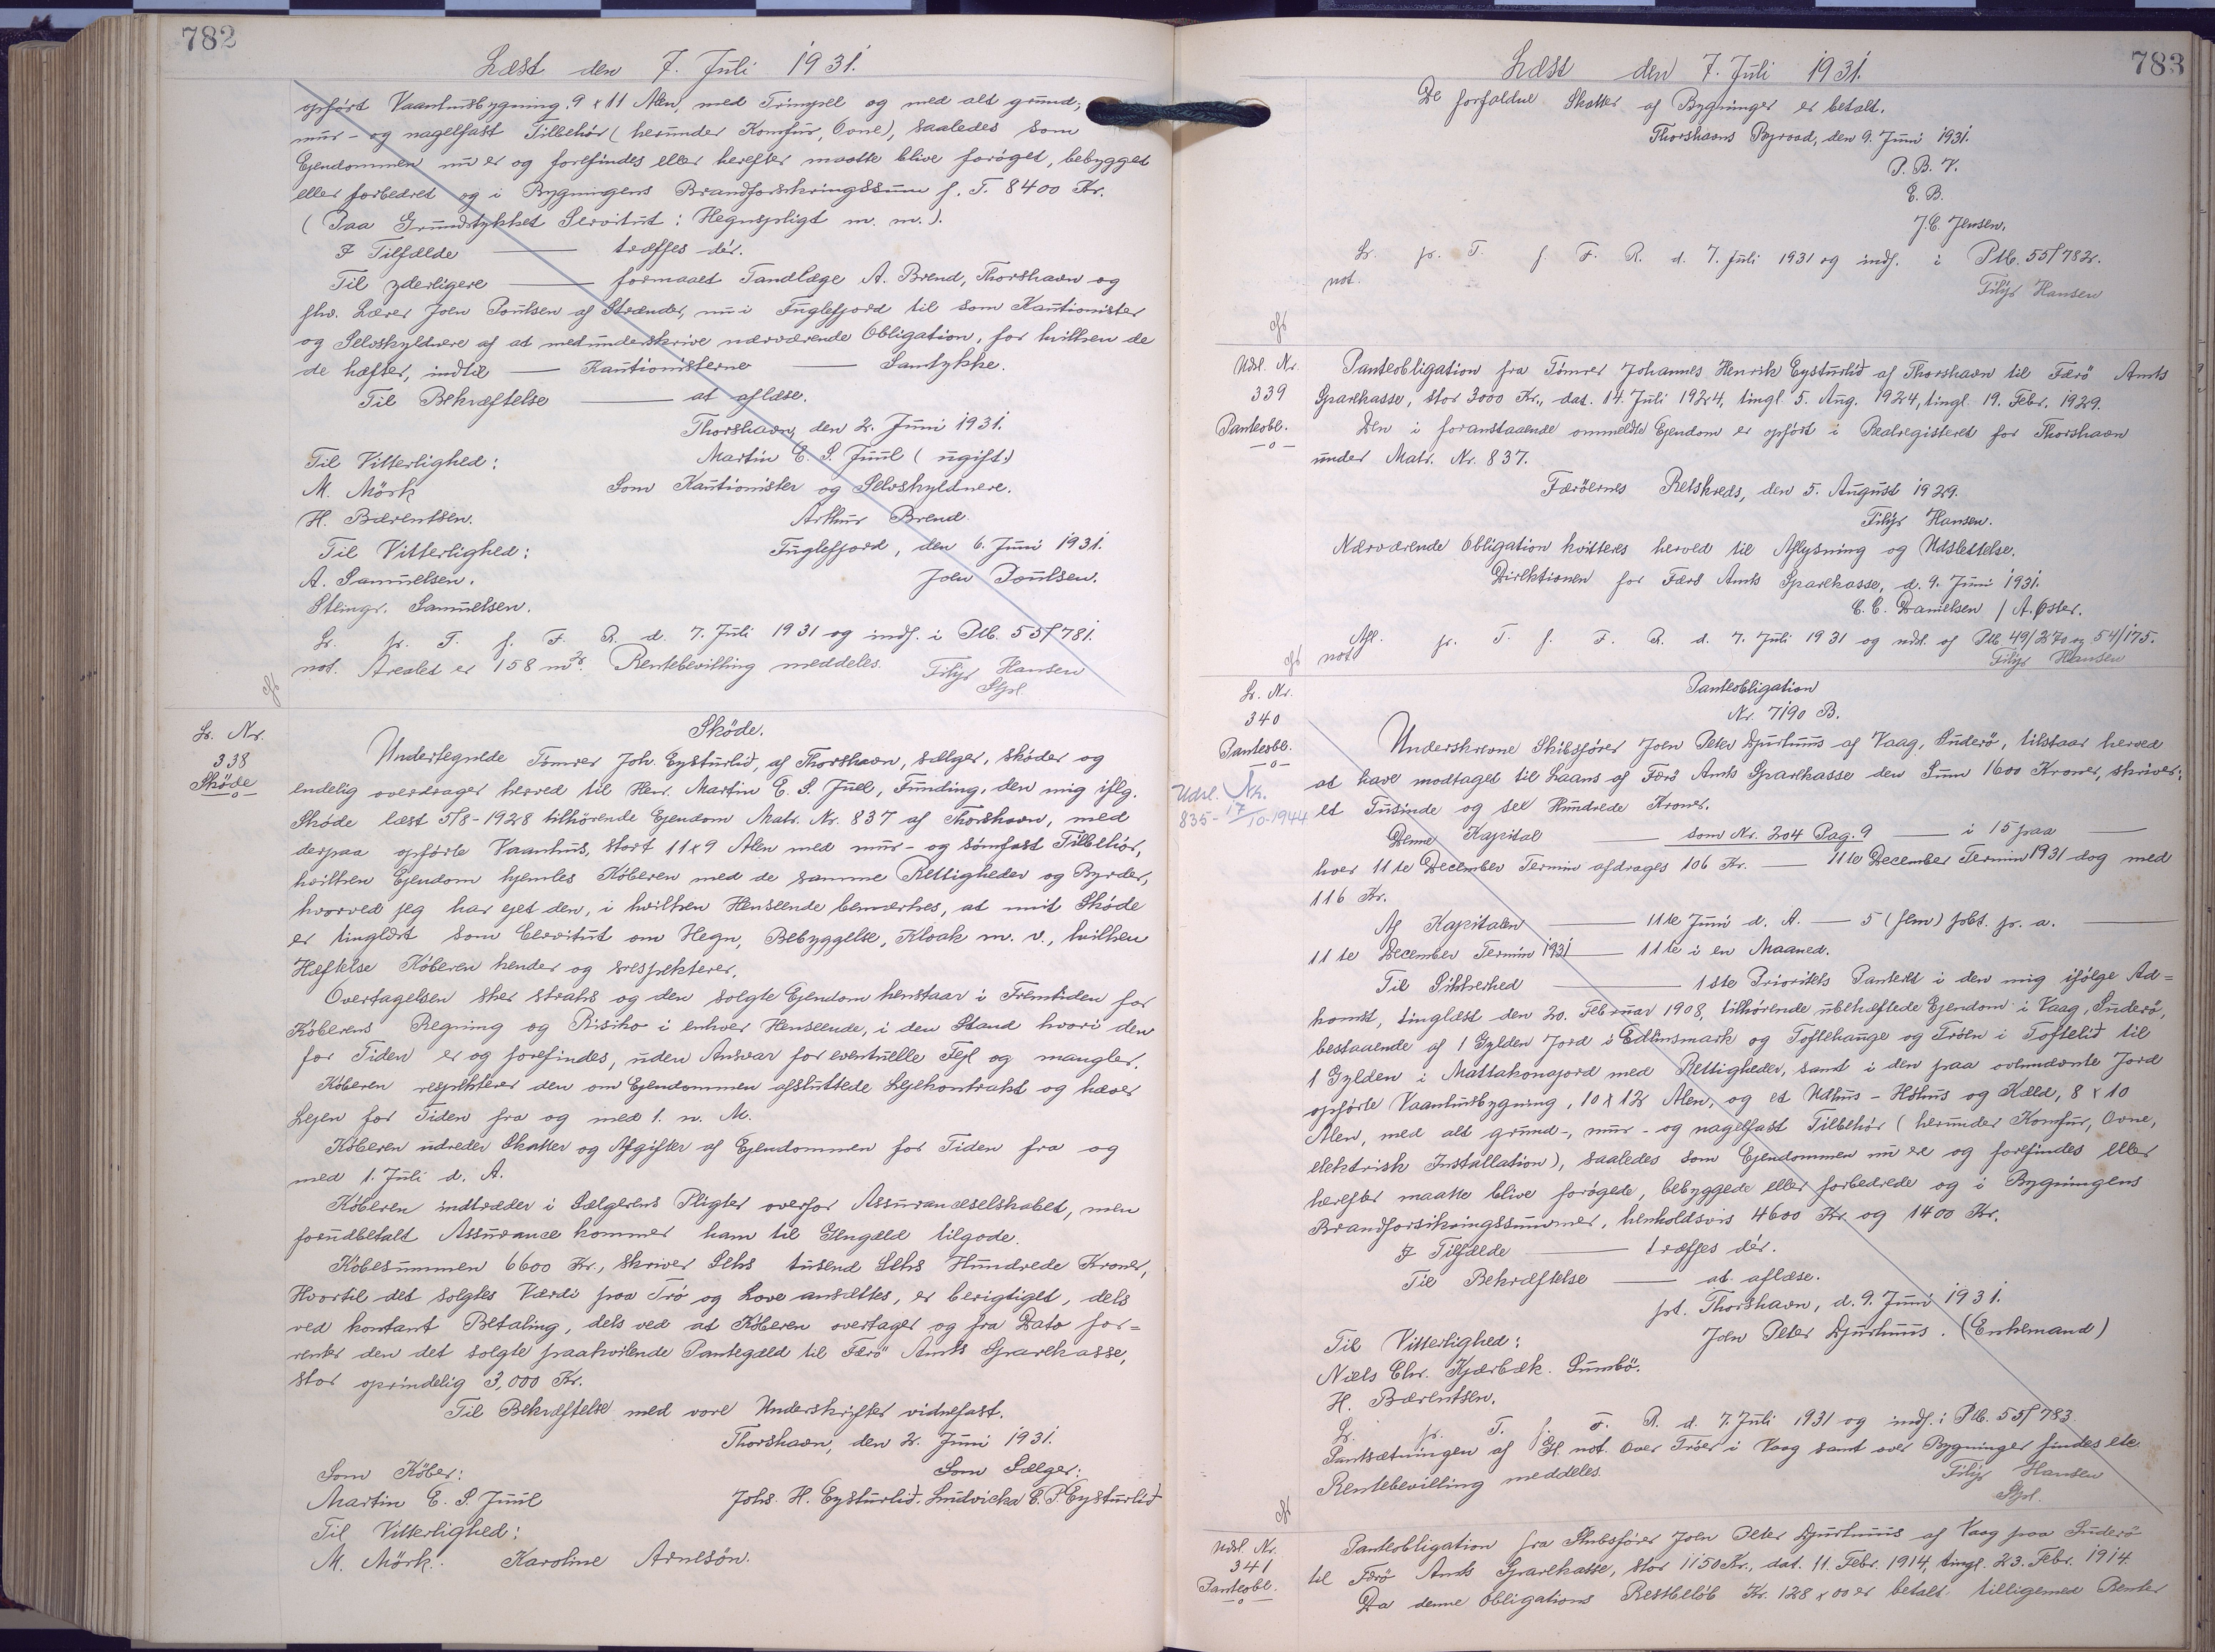 782
Læst den 7. Juli 1931.
opført Vaanhusbygning, 9 x 11 Alen, med Trimpel og med alt grund-,
mur- og nagelfast Tilbehör (herunder Komfur, Ovne), saaledes som
Ejendommen nu er og forefindes eller herefter maatte blive foröget, bebygget
eller forbedret og i Bygningens Brandforsikringssum p. T. 8400 Kr.
(Paa Grundstykket Servitut: Hegnspligt m. m.).
I Tilfælde — træffes dér.
Til yderligere — formaaet Tandlæge A. Brend, Thorshavn og
fhv. Lærer Joen Poulsen af Strænder, nu i Fuglefjord til som Kautionister
og Selvskyldnere af at medunderskrive nærværende Obligation, for hvilken de
de hæfter, indtil — Kautionisterne — Samtykke.
Til Bekræftelse — at aflæse.
Thorshavn, den 2. Juni 1931.
Til Vitterlighed: Martin E. S. Juul (ugift.)
M. Mörk Som Kautionister og Selvskyldnere.
H. Bærentsen. Arthur Brend.
Til Vitterlighed: Fuglefjord, den 6. Juni 1931.
A. Samuelsen. Joen Poulsen.
Steingr. Samuelsen.
Lr. pr. T. f. F. R. d. 7. Juli 1931 og indf. i Ptb. 55/781.
not. Arealet er 158 m2. Rentebevilling meddeles. Filip Hansen
Stpl.
Lr. Nr.
338
Sköde
—o—
Sköde.
Undertegnede Tömrer Joh. Eysturlið, af Thorshavn, sælger, sköder og
endelig overdrager herved til Herr. Martin E. S. Juul, Funding, den mig iflg.
Sköde læst 5/8-1928 tilhörende Ejendom Matr. Nr. 837 af Thorshavn, med
derpaa opförte Vaanhus, stort 11x9 Alen med mur- og sömfast Tilbehör,
hvilken Ejendom hjemles Köberen med de samme Rettigheder og Byrder,
hvorved jeg har ejet den, i hvilken Henseende bemærkes, at mit Sköde
er tinglæst som Servitut om Hegn, Bebyggelse, Kloak m. v., hvilken
Hæftelse Köberen kender og respekterer.
Overtagelsen sker straks og den solgte Ejendom henstaar i Fremtiden for
Köberens Regning og Risiko i enhver Henseende, i den Stand hvori den
for Tiden er og forefindes, uden Ansvar for eventuelle Fejl og mangler.
Köberen respekterer den om Ejendommen afsluttede Lejekontrakt og hæver
Lejen for Tiden fra og med 1. n. M.
Köberen udreder Skatter og Afgifter af Ejendommen for Tiden fra og
med 1. Juli d. A.
Köberen indtræder i Sælgerens Pligter overfor Assuranceselskabet, men
forudbetalt Assurance kommer ham til Gengæld tilgode.
Köbesummen 6600 Kr., skriver Seks tusend Seks Hundrede Kroner,
Hvortil det solgtes Værdi paa Tro og Love ansættes, er berigtiget, dels
ved kontant Betaling, dels ved at Köberen overtager og fra Dato for=
renter den det solgte paahvilende Pantegæld til Færö Amts Sparekasse,
stor oprindelig 3,000 Kr.
Til Bekræftelse med vore Underskrifter vidnefast.
Thorshavn, den 2. Juni 1931.
Som Köber: Som Sælger:
Martin E. S. Juul Johs. H. Eysturlið. Ludvicka E. P. Eysturlið
Til Vitterlighed:
M. Mörk. Karoline Arnesön.
783
Læst den 7. Juli 1931.
De forfaldne Skatter af Bygninger er betalt.
Thorshavns Byraad, den 9. Juni 1931.
P. B. V.
E. B.
J. C. Jensen.
Lr. pr. T. f. F. R. d. 7. Juli 1931 og indf. i Ptb. 55/782.
not. Filip Hansen
Udsl. Nr.
339
Panteobl.
—o—
Panteobligation fra Tömrer Johannes Henrik Eysturlið af Thorshavn til Færö Amts
Sparekasse, stor 3000 Kr., dat. 14. Juli 1924, tingl. 5. Aug. 1924, tingl. 19. Febr. 1929.
Den i foranstaaende ommeldte Ejendom er opfört i Realregisteret for Thorshavn
under Matr. Nr. 837.
Færöernes Retskreds, den 5. August 1929.
Filip Hansen.
Nærværende Obligation kvitteres herved til Aflysning og Udslettelse.
Direktionen for Færö Amts Sparekasse, d. 9. Juni 1931.
C. C. Danielsen / A. Öster.
Afl. pr. T. f. F. R. d. 7. Juli 1931 og udsl. af Ptb 49/270 og 54/175.
not. Filip Hansen
Lr. Nr.
340
Panteobl.
—o—
Udsl. Nr.
835 - 17/10-1944
Panteobligation
Nr. 7190 B.
Underskrevne Skibsförer Joen Peter Djurhuus af Vaag, Suderö, tilstaar herved
at have modtaget til Laans af Færö Amts Sparekasse den Sum 1600 Kroner, skriver:
et Tusinde og sex Hundrede Kroner.
Denne Kapital — som Nr. 204 Pag. 9 — i 15 paa —
hver 11te December Termin afdrages 106 Kr. — 11te December Termin 1931 dog med
116 Kr.
Af Kapitalen — 11te Juni d. A. — 5 (fem) pCt. pr. a. —
11te December Termin 1931 — 11te i en Maaned.
Til Sikkerhed — 1ste Prioritets Panteret i den mig ifölge Ad=
komst, tinglæst den 20. Februar 1908, tilhörende ubehæftede Ejendom i Vaag, Suderö,
bestaaende af 1 Gylden Jord i Edlinsmark og Toftehauge og Tröen i Toftelið til
1 Gylden i Mattakonajord med Rettigheder, samt i den paa ovennævnte Jord
opförte Vaanhusbygning, 10 x 12 Alen, og et Udhus - Höhus og Kæld, 8 x 10
Alen, med alt grund-, mur- og nagelfast Tilbehör (herunder Komfur, Ovne,
elektrisk Installation), saaledes som Ejendommen nu er og forefindes eller
herefter maatte blive forögede, bebyggede eller forbedrede og i Bygningens
Brandforsikringssummer, henholdsvis 4600 Kr og 1400 Kr.
I Tilfælde — træffes dér.
Til Bekræftelse — at aflæse.
pt. Thorshavn, d. 9. Juni 1931.
Til Vitterlighed: Joen Peter Djurhuus. (Enkemand)
Niels Chr. Kjærbæk. Sumbö.
H. Bærentsen.
Lr. pr. T. f. F. R. d. 7. Juli 1931 og indf. i Ptb. 55/783.
Pantsætningen af Gl. not. over Tröer i Vaag samt over Bygninger findes etc.
Rentebevilling meddeles. Filip Hansen
Stpl.
Udsl. Nr.
341
Panteobl.
—o—
Panteobligation fra Skibsförer Joen Peter Djurhuus af Vaag paa Suderö
til Færö Amts Sparekasse, stor 1150 Kr., dat. 11. Febr. 1914, tingl. 23. Febr. 1914.
Da denne Obligations Restbelöb Kr. 128 x 00 er betalt tilligemed Renter